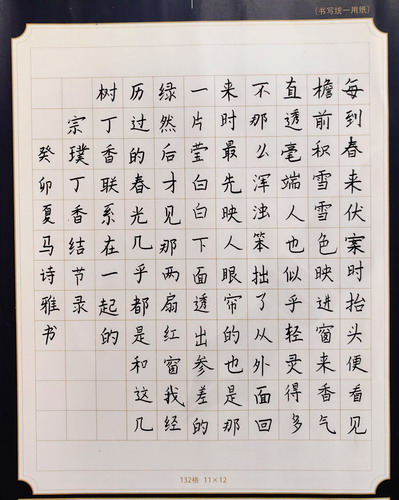 （书写统一用纸）
每到春来伏案时抬头便看见
檐前积雪雪色映进窗来香气
直透毫端人也似乎轻灵得多
不那么浑浊笨拙了从外面回
来时最先映人眼帘的也是那
一片莹白白下面透出参差的
绿然后才见那两扇红窗我经
历过的春光几乎都是和这几
树丁香联系在一起的
宗璞丁香结节录
癸卯夏马诗雅书
132格 11×12